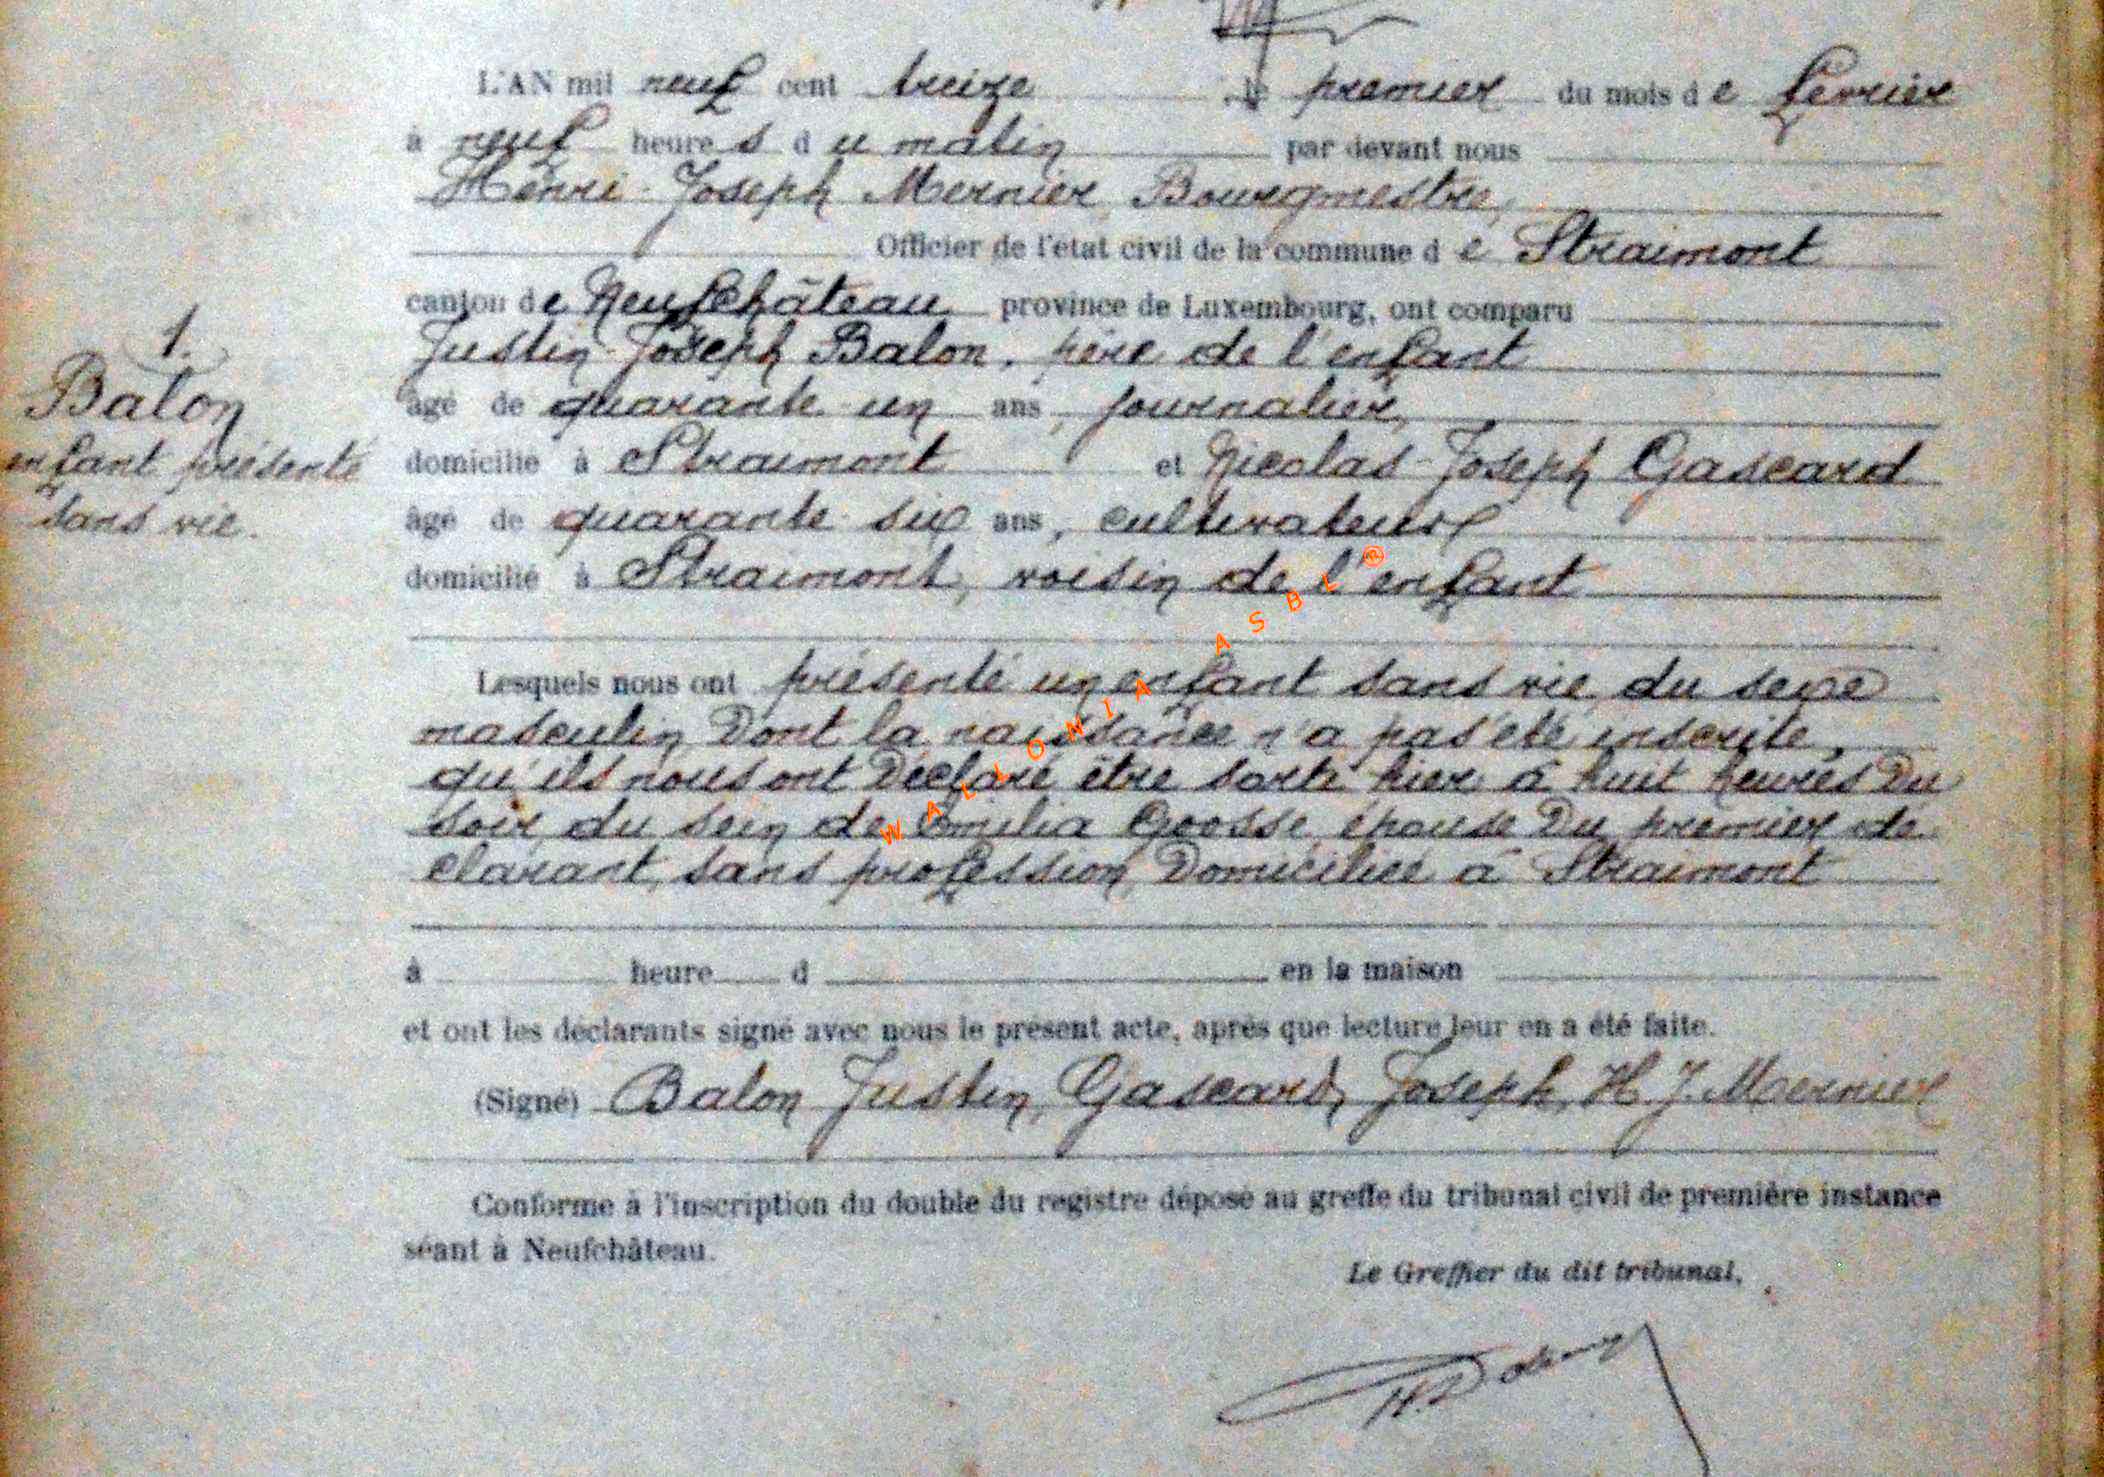 L'AN mil neuf cent treize le premier du mois de février
à neuf heures du matin par devant nous
Henri-Joseph Mernier, Bourgmestre,
Officier de l'état civil de la commune de Straimont
canton de Neufchâteau province de Luxembourg, ont comparu
Justin-Joseph Balon, père de l'enfant
âgé de quarante un ans, journalier,
domicilié à Straimont et Nicolas-Joseph Gascard
âgé de quarante-six ans, cultivateur
domicilié à Straimont, voisin de l'enfant
1.
Balon
enfant présenté
sans vie.
Lesquels nous ont présenté un enfant sans vie du sexe
masculin dont la naissance n'a pas été inscrite,
qu'ils nous ont déclaré être sorti hier à huit heures du
soir du sein de Emilia Goosse, épouse du premier dé-
clarant, sans profession, domiciliée à Straimont
à heure d en la maison
et ont les déclarants signé avec nous le présent acte, après que lecture leur en a été faite.
(Signé) Balon Justin, Gascard, Joseph, H. J. Mernier
Conforme à l'inscription du double du registre déposé au greffe du tribunal civil de première instance
séant à Neufchâteau.
Le Greffier du dit tribunal,
WALLONIA ASBL®